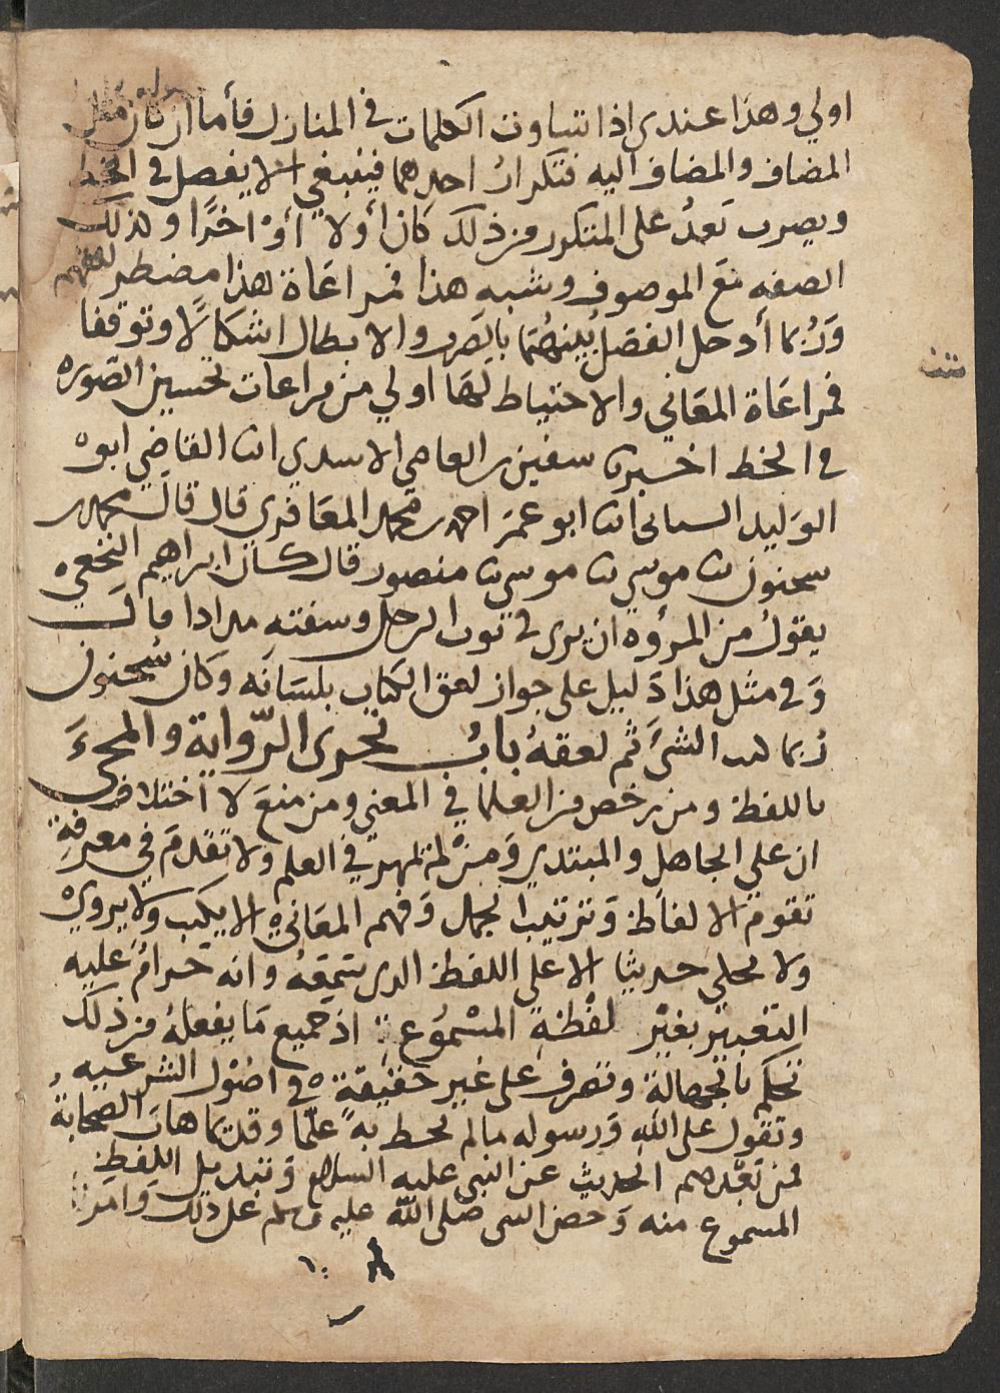 اولي وهذا عندي اذا تساوت الكلمات في المنازل فأما ان كان مثل
المضاف والمضاف اليه فتكرار احدهما فينبغي الا يفصل في الخط
ويضرب بعدُ على المتكرر من ذلك كان أولا أوْ اخرًا وكذلك
الصفه مَع الموصوف وشبه هذا فمراعاة هذا مضطر للفهم
وَرُبما أدخل الفصَل بينهُمَا بالضرب والابطال اشكالًا وتوقفا
فمراعَاة المعَاني والاحتياط لهَا اولي من مراعات تحسين الصّوره
في الخط اخبرنا سفين بن العاصي الاسدي انا القاضي ابو
الوَليد الكناني انا ابو عمرَ احمد بن محمد المعَافري قال قال محمد بن
سحنون نا موسي نا موسي نا منصور قال كان ابراهيم النخعي
يقولُ من المرُوه ان يرى في ثوب الرجل وشفته مدادا قال
وَفي مثل هذا دَليل على جواز لعق الكتاب بلسَانه وَكان سُحنون
رُبما كتب الشيَ ثم لعقهُ بابُ تحرى الرّواية والمجيءَ
باللفظ ومن رخص من العلما في المعني ومن منعَ لا اختلاف
ان علي الجاهل والمبتدي وَمنْ لم يمهر في العلم ولا تقدمَ في معرفةِ
تقوم الالفاظ وَترتيب الجمل وَفهم المعَاني الا يكتب ولا يروي
ولا يحكي حديثا الا على اللفظ الذي سَمِعَهُ وانه حرامٌ عليه
التعبير بغيْر لفظهِ المسْمُوع اذ جميع مَا يفعلهُ من ذلك
تحكم بالجهالة وتصرف على غير حقيقة في اصُول الشرعيه
وتقول على اللّٰه وَرسوله مالم يحط به علمًا وقد كما هابَ الصّحابةُ
فمن بَعْدهم الحديث عن النبي عليه السلام وَتبديل اللفظِ
المسموع منه وَحض النبي صَلى اللّٰه عليه وسلم على ذلك وَامر